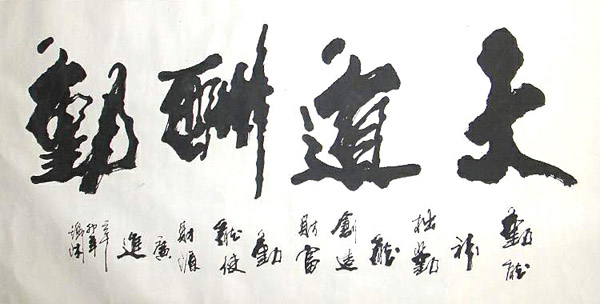 天道酬勤
勤能
補
拙勤
能
創造
財富
勤
能使
財源
廣
進